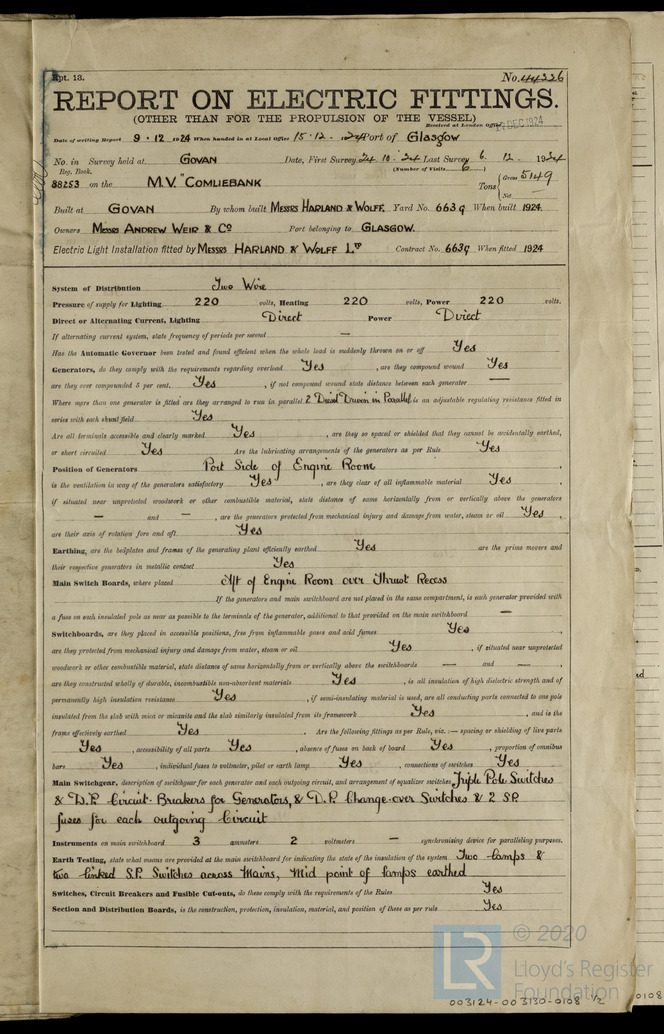 Rpt. 13. No. 44326
REPORT ON ELECTRIC FITTINGS.
(OTHER THAN FOR THE PROPULSION OF THE VESSEL)
Received at London Office DEC 1924
Date of writing Report 9 · 12 1924 When handed in at Local Office 15 · 12 · 1924 Port of Glasgow
No. in Survey held at GOVAN Date, First Survey 24 · 10 · 24 Last Survey 6. 12. 1924
Reg. Book. (Number of Visits 6)
88253 on the M.V. "COMLIEBANK Tons { Gross 5149
Net —
Built at GOVAN By whom built MESSRS HARLAND & WOLFF. Yard No. 663g When built 1924.
Owners MESSRS ANDREW WEIR & Co Port belonging to GLASGOW.
Electric Light Installation fitted by MESSRS HARLAND & WOLFF LTD Contract No. 663g When fitted 1924
System of Distribution Two Wire
Pressure of supply for Lighting 220 volts, Heating 220 volts, Power 220 volts.
Direct or Alternating Current, Lighting Direct Power Direct
If alternating current system, state frequency of periods per second —
Has the Automatic Governor been tested and found efficient when the whole load is suddenly thrown on or off Yes
Generators, do they comply with the requirements regarding overload Yes , are they compound wound Yes
are they over compounded 5 per cent. Yes , if not compound wound state distance between each generator —
Where more than one generator is fitted are they arranged to run in parallel 2 Diesel Driven in Parallel, is an adjustable regulating resistance fitted in
series with each shunt field Yes
Are all terminals accessible and clearly marked Yes , are they so spaced or shielded that they cannot be accidentally earthed,
or short circuited Yes Are the lubricating arrangements of the generators as per Rule Yes
Position of Generators Port Side of Engine Room ,
is the ventilation in way of the generators satisfactory Yes , are they clear of all inflammable material Yes ,
if situated near unprotected woodwork or other combustible material, state distance of same horizontally from or vertically above the generators
— and — , are the generators protected from mechanical injury and damage from water, steam or oil Yes ,
are their axis of rotation fore and aft Yes
Earthing, are the bedplates and frames of the generating plant efficiently earthed Yes are the prime movers and
their respective generators in metallic contact Yes
Main Switch Boards, where placed Aft of Engine Room over Thrust Recess
If the generators and main switchboard are not placed in the same compartment, is each generator provided with
a fuse on each insulated pole as near as possible to the terminals of the generator, additional to that provided on the main switchboard —
Switchboards, are they placed in accessible positions, free from inflammable gases and acid fumes Yes ,
are they protected from mechanical injury and damage from water, steam or oil Yes , if situated near unprotected
woodwork or other combustible material, state distance of same horizontally from or vertically above the switchboards — and — ,
are they constructed wholly of durable, incombustible non-absorbent materials Yes , is all insulation of high dielectric strength and of
permanently high insulation resistance Yes , if semi-insulating material is used, are all conducting parts connected to one pole
insulated from the slab with mica or micanite and the slab similarly insulated from its framework Yes , and is the
frame effectively earthed Yes . Are the following fittings as per Rule, viz. :— spacing or shielding of live parts
Yes , accessibility of all parts Yes , absence of fuses on back of board Yes , proportion of omnibus
bars Yes , individual fuses to voltmeter, pilot or earth lamp Yes , connections of switches Yes
Main Switchgear, description of switchgear for each generator and each outgoing circuit, and arrangement of equalizer switches Triple Pole Switches
& D.P. Circuit-Breakers for Generators, & D.P. Change-over Switches & 2 S.P.
fuses for each outgoing Circuit
Instruments on main switchboard 3 ammeters 2 voltmeters — synchronising device for paralleling purposes.
Earth Testing, state what means are provided at the main switchboard for indicating the state of the insulation of the system Two lamps &
two linked S.P. Switches across Mains, Mid point of lamps earthed
Switches, Circuit Breakers and Fusible Cut-outs, do these comply with the requirements of the Rules Yes
Section and Distribution Boards, is the construction, protection, insulation, material, and position of these as per rule Yes
LR
© 2020
Lloyd's Register
Foundation
003124-003130-0108 1/2
0108